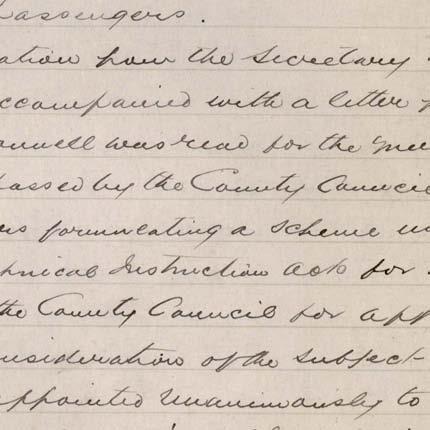 passengers.
ation from the Secretary
ccompanied with a letter
onnell was read for the
passed by the County Council
ers formulating a scheme un
chnical Instruction Acts for
the County Council for app
nsideration of the subject
ppointed unanimously to